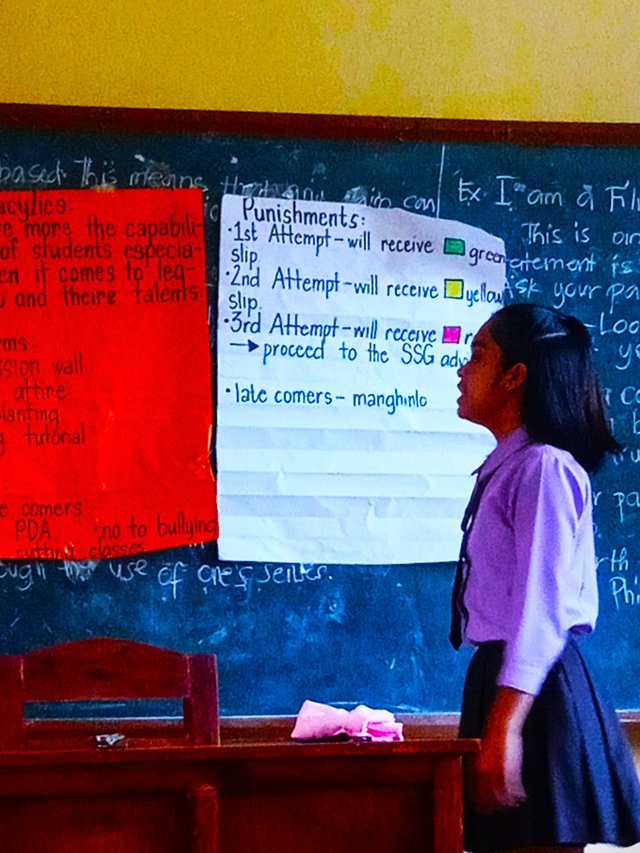 based. This means that can
acylies:
e more the capabili-
of students especia-
en it comes to lea-
and theire talents
ms:
ssion wall
attire
lanting
g tutorial
e comers
PDA •no to bullying
cutting classes
Punishments:
•1st Attempt-will receive green
slip
•2nd Attempt-will receive yellow
slip.
•3rd Attempt-will receive r
→proceed to the SSG adv
•late comers- manghinlo
ough the use of one's senses.
Ex. I am a Fili
This is
atement is
Ask your pa
-Loo